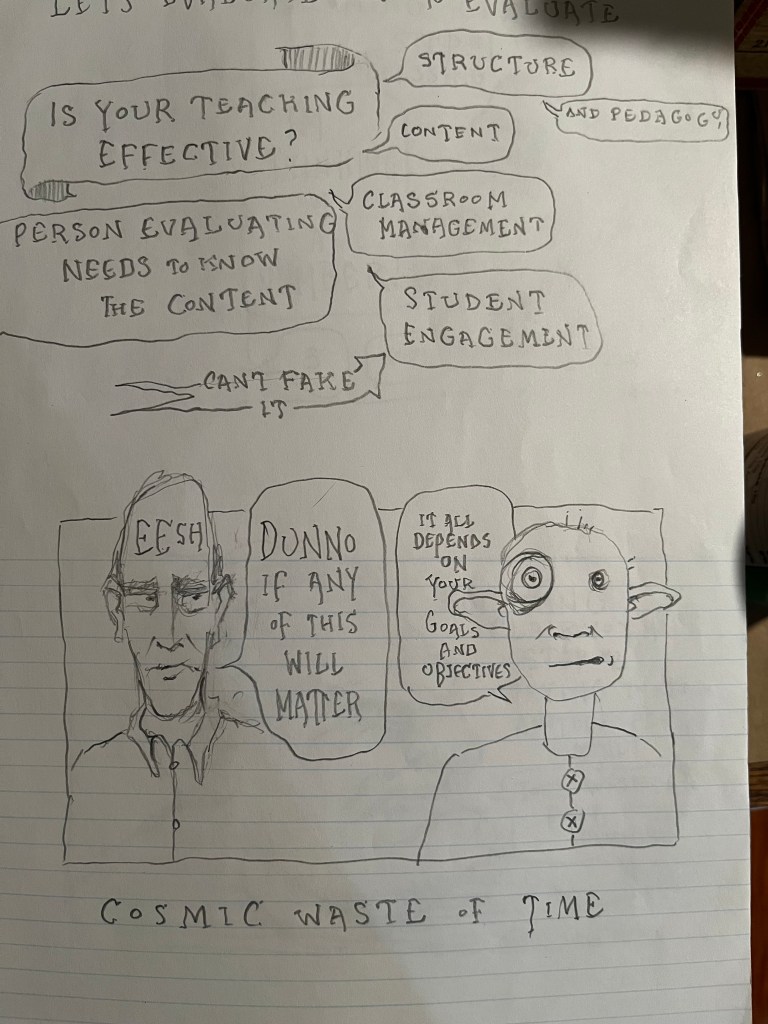 LETS
TO EVALUATE
IS YOUR TEACHING
EFFECTIVE?
STRUCTURE
AND PEDAGOGY
CONTENT
CLASSROOM
MANAGEMENT
PERSON EVALUATING
NEEDS TO KNOW
THE CONTENT
STUDENT
ENGAGEMENT
CANT FAKE
IT
EESH
DUNNO
IF ANY
OF THIS
WILL
MATTER
IT ALL
DEPENDS
ON
YOUR
GOALS
AND
OBJECTIVES
COSMIC WASTE OF TIME